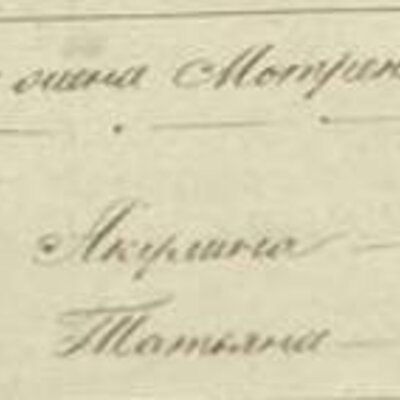 жена Мотрен
Акулина
Татьяна